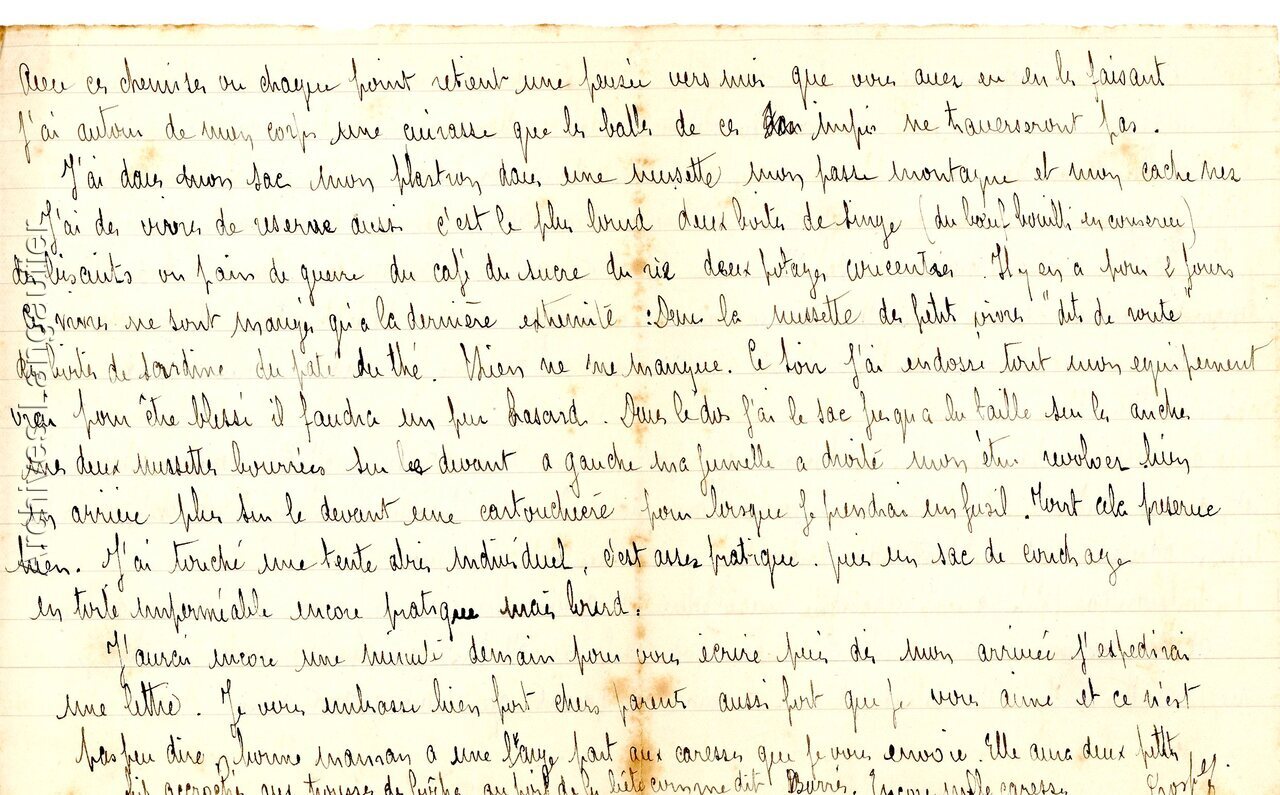 Avec ces chemises ou chaque point retient une pensée vers moi que vous avez eu en les faisant
J'ai autour de mon corps une cuirasse que les balles de ces impis ne traverseront pas.
J'ai dans mon sac mon plastron dans une musette mon passe montagne et mon cache nez
J'ai des vivres de reserve aussi c'est le plus lourd deux boites de singe (du bœuf bouilli en conserve)
des biscuits ou pain de guerre du café du sucre du riz deux potages concentrés. Il y en a pour 2 jours
Ces vivres ne sont mangés qu'a la dernière extremité : Dans la mussette des petits vivres "dits de route"
des boites de sardine du paté du thé. Rien ne me manque. Ce soir j'ai endossé tout mon equipement
vrai pour être blessé il faudra un peu hasard. Dans le dos j'ai le sac jusqu'a la taille sur les anches
mes deux mussettes bourrées sur le devant a gauche ma jumelle a droite mon étui revolver bien
en arriere plus sur le devant une cartouchière pour lorsque je prendrai un fusil. Tout cela preserve
bien. J'ai touché une tente abris individuel, c'est assez pratique. puis un sac de couchage
en toile imperméable encore pratique mais lourd.
J'aurai encore une minute demain pour vous écrire puis dès mon arrivée j'expedirai
une lettre. Je vous embrasse bien fort chers parents aussi fort que je vous aime et ce n'est
pas peu dire, bonne maman a une large part aux caresses que je vous envoie. Elle aura deux petits
accroché aux trousses de comme dit Encore mille caresses
Archives Langeunier